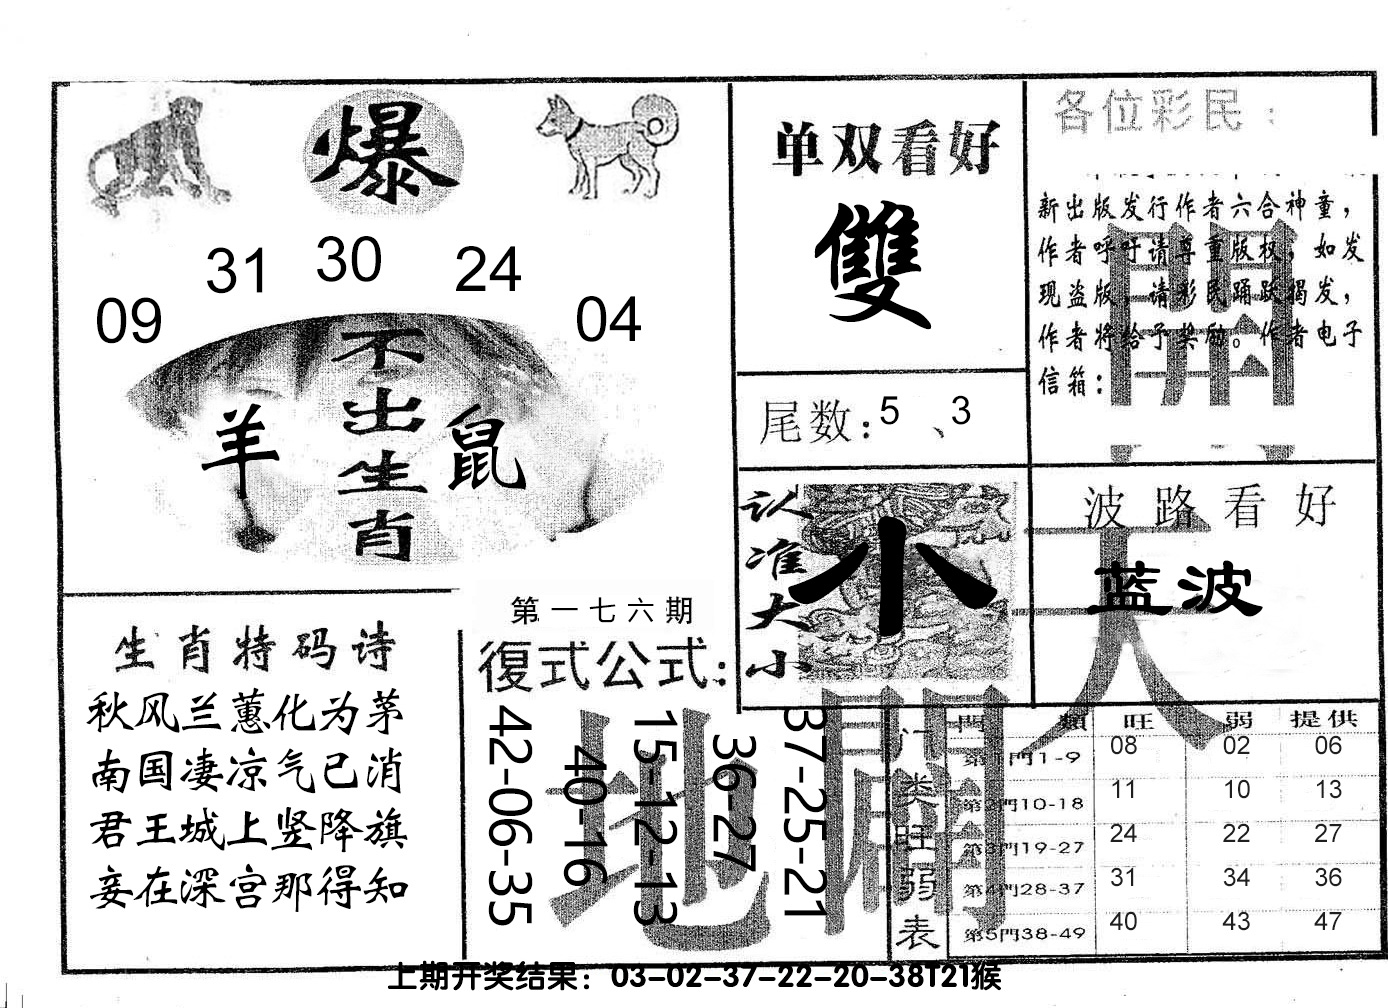 爆
31 30 24
09 04
不出生肖
羊 鼠
单双看好
雙
尾数：5、3
各位彩民：
新出版发行作者六合神童，
作者呼吁请尊重版权，如发
现盗版，请彩民踊跃揭发，
作者将给予奖励。作者电子
信箱：
認准大小
小
波路看好
蓝波
天
開
地
閙
生肖特码诗
秋风兰蕙化为茅
南国凄凉气已消
君王城上竖降旗
妾在深宫那得知
第一七六期
復式公式：
42-06-35
40-16
15-12-13
36-27
37-25-21
门类旺弱表
門類 旺 弱 提供
第1門1-9 08 02 06
第2門10-18 11 10 13
第3門19-27 24 22 27
第4門28-37 31 34 36
第5門38-49 40 43 47
上期开奖结果：03-02-37-22-20-38T21猴